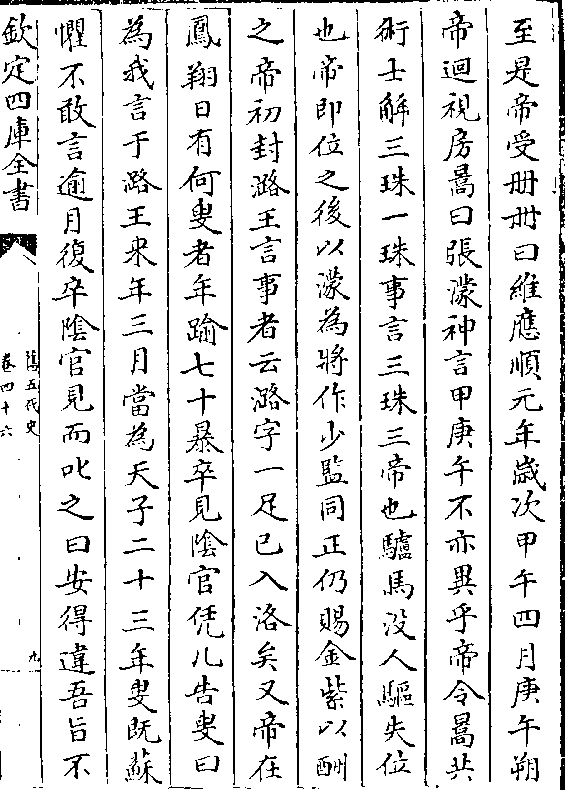 至是帝受册册曰維應順元年歳次甲午四月庚午朔
帝迴視房暠曰張濛神言甲庚午不亦異乎帝令暠共
術士解三珠一珠事言三珠三帝也驢馬没人驅失位
也帝即位之後以濛為將作少監同正仍賜金紫以酬
之帝初封潞王言事者云潞字一足已入洛矣又帝在
鳳翔日有何叟者年踰七十暴卒見陰官凭几告叟曰
為我言于潞王来年三月當為天子二十三年叟既蘇
懼不敢言逾月復卒陰官見而叱之曰安得違吾旨不
欽定四庫全書
舊五代史
卷四十六
九